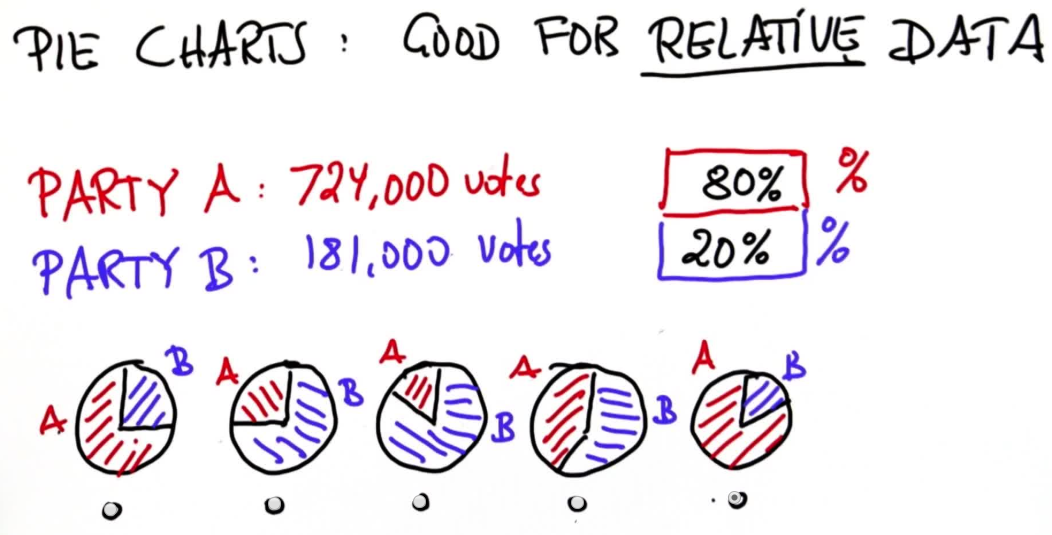 PIE CHARTS: GOOD FOR RELATIVE DATA
PARTY A: 724,000 votes 80% %
PARTY B: 181,000 votes 20% %
A B A B A B A B A B